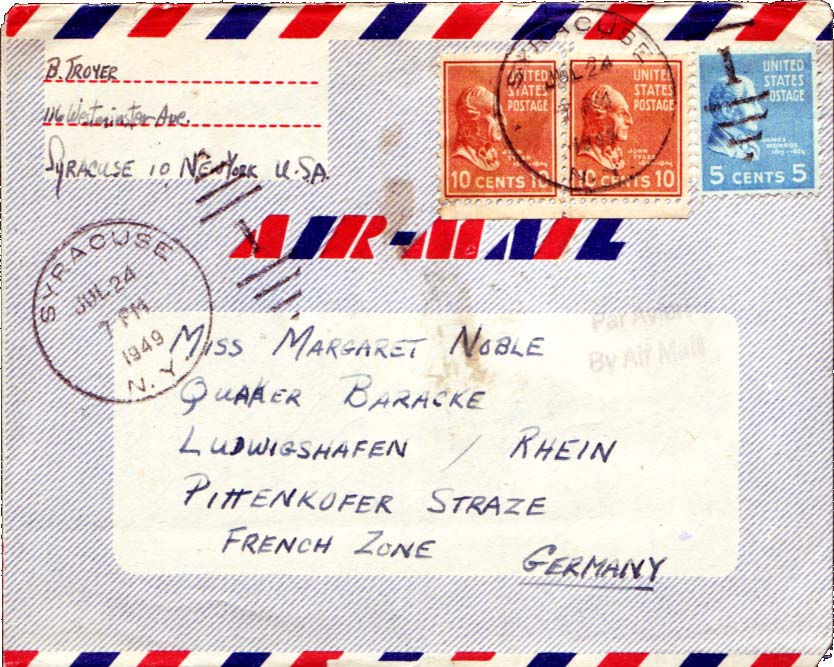 B. TROYER
116 Westminster Ave.
SYRACUSE 10 NEW YORK U.S.A.
UNITED
STATES
POSTAGE
JOHN
TYLER
10 CENTS 10
UNITED
STATES
POSTAGE
JOHN
TYLER
10 CENTS 10
UNITED
STATES
POSTAGE
JAMES
MONROE
5 CENTS 5
SYRACUSE
JUL 24
N.Y.
1
AIR-MAIL
SYRACUSE
JUL 24
7 PM
1949
N.Y.
1
Par Avion
By Air Mail
MISS MARGARET NOBLE
QUAKER BARACKE
LUDWIGSHAFEN / RHEIN
PITTENKOFER STRAZE
FRENCH ZONE
GERMANY